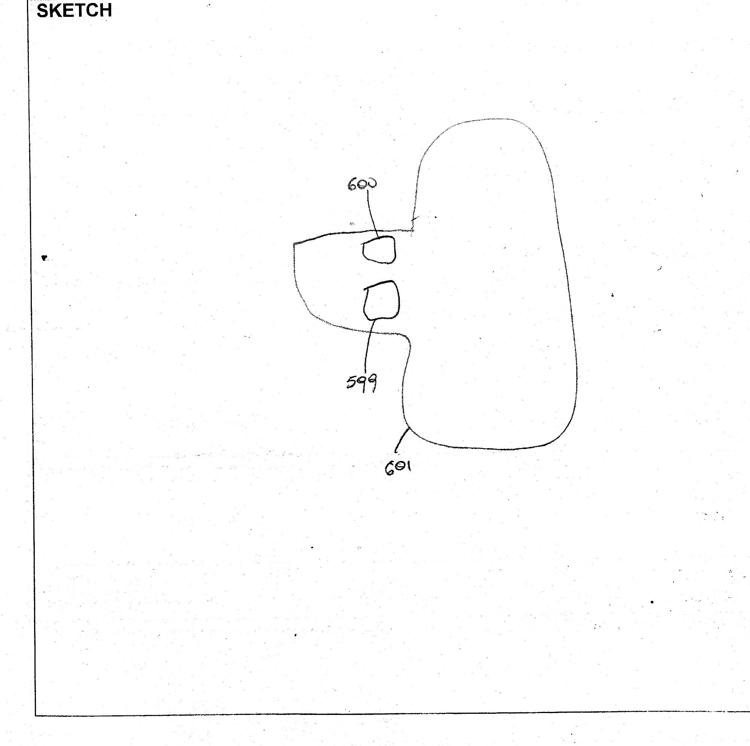 SKETCH
600
599
601